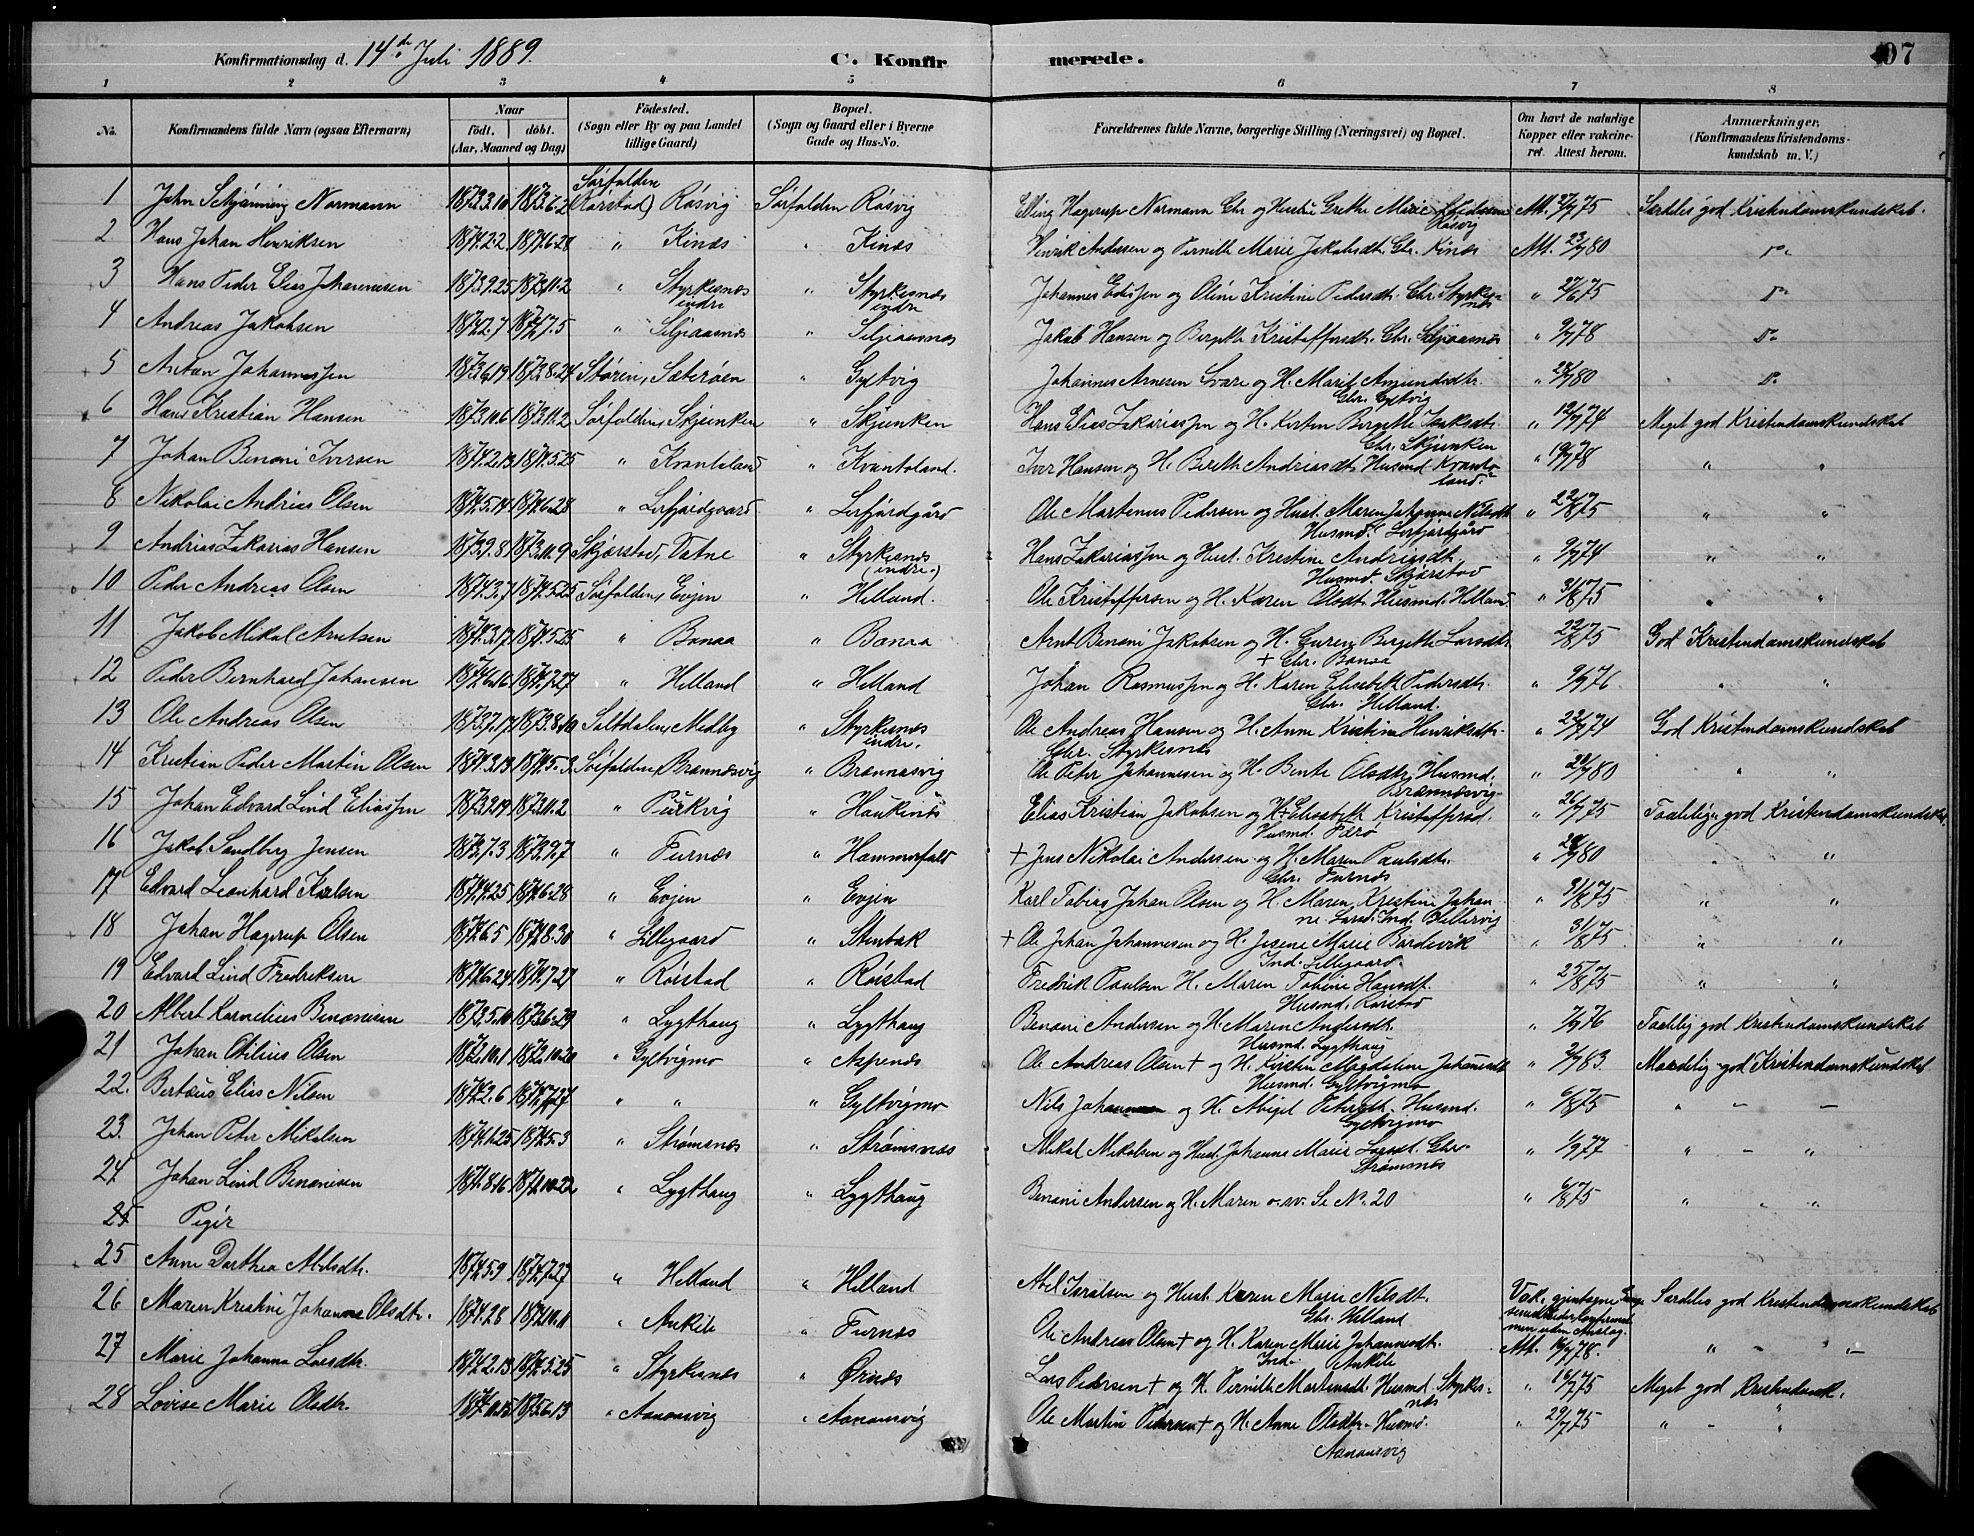 Konfirmationsdag d. 14de Juli 1889.
C. Konfirmerede.
107
1 2 3 4 5 6 7 8
No.
Konfirmandens fulde Navn (ogsaa Efternavn)
Naar
födt. döbt.
(Aar, Maaned og Dag)
Födested.
(Sogn eller By og paa Landet
tillige Gaard)
Bopæl.
(Sogn og Gaard eller i Byerne
Gade og Hus-No.
Forældrenes fulde Navne, borgerlige Stilling (Næringsvei) og Bopæl.
Om havt de naturlige
Kopper eller vakcine-
ret. Attest herom.
Anmærkninger.
(Konfirmandens Kristendoms-
kundskab m. V.)
1 John Schjönning Normann 1873.3.10 1873.6.2 Sörfolden (Rörstad) Rösvig Sörfolden Rösvig Elling Hagerup Normann Gbr. og Hustru Grethe Marie Rösvig Att. 2/7 75 Særdeles god Kristendomskundskab.
2 Hans Johan Henriksen 1874.2.2 1874.6.28 " Kinæs " Kinæs Henrik Andersen og Pernille Marie Jakobsdt. Gbr. Kinæs Att. 23/7 80 Do
3 Hans Peder Elias Johannesen 1873.9.25 1873.11.2 " Styrkesnæs indre " Styrkesnæs indre Johannes Edissen og Oline Kristine Pedersdt. Gbr. Styrkesnæs " 27/6 75 Do
4 Andreas Jakobsen 1874.2.7 1874.7.5 " Seljeaasnæs " Seljeaasnæs Jakob Hansen og Bergithe Kristoffersdt. Gbr. Seljeaasnæs " 9/7 78 Do
5 Anton Johannessen 1873.6.19 1873.8.24 Støren, Sæterøen " Gyltvig Johannes Arnesen Svare og H. Marit Amundsdtr. Gbr. Gyltvig " 28/7 80 Do
6 Hans Kristian Hansen 1873.10.6 1873.11.2 Sörfolden, Skjeinken " Skjeinken Hans Elias Zakariassen og H. Kirsten Bergithe Isaksdt. Gbr. Skjeinken " 12/7 74 Meget god Kristendomskundskab
7 Johan Benoni Iversen 1874.2.13 1874.5.25 " Kvantoland " Kvantoland. Iver Hansen og H. Berith Andreasdt. Husmd. Kvantoland. " 19/7 78 " "
8 Nikolai Andreas Olsen 1874.5.14 1874.6.28 " Leifjordgaard " Leifjordgård Ole Martenus Pedersen og Hust. Maren Johanna Nilsdt. Husmd. Leifjordgård " 22/8 75 " "
9 Andreas Zakarias Hansen 1873.9.8 1873.11.9 Skjærstad, Fatne " Styrkesnæs (indre.) Hans Zakariassen og Hust. Kristine Andreasdt. Husmd. Skjærstad " 9/7 74 " "
10 Peder Andreas Olsen 1874.3.7 1874.5.25 Sörfolden, Evjen " Helland. Ole Kristoffersen og H. Karen Olsdt. Husmd. Helland " 31/8 75 " "
11 Jakob Mikal Arntsen 1874.3.17 1874.5.25 " Bonaa " Bonaa Arnt Benoni Jakobsen og H. Guren Bergithe Larsdt. + Gbr. Bonaa " 22/8 75 God Kristendomskundskab
12 Peder Bernhard Johansen 1874.6.16 1874.7.27 " Helland " Helland Johan Rasmussen og H. Karen Elisebeth Pedersdt. Gbr. Helland. " 9/9 76 " "
13 Ole Andreas Olsen 1873.7.17 1873.8.10 Saltdalen, Medby " Styrkesnæs indre. Ole Andreas Hansen og H. Anne Kristine Henriksdt. Gbr. Styrkesnæs " 22/7 74 God Kristendomskundskab
14 Kristian Peder Martin Olsen 1874.3.13 1874.5.3 Sörfolden, Brannæsvig " Brannæsvig Ole Peter Johannesen og H. Bente Olsdtr. Husmd. Brannæsvig " 20/7 80 " "
15 Johan Edvard Lind Eliassen 1873.2.19 1873.11.2 " Purkvig " Elias Kristian Jakobsen og H. Elisabeth Kristoffersd. Husmd. Færö " 26/7 75 Taalelig god Kristendomskundskab.
16 Jakob Sandberg Jensen 1873.7.3 1873.9.7 " Furnæs " Hammerfald + Jens Nikolai Andersen og H. Maren Paulsdtr. Gbr. Furnæs " 20/7 80 " "
17 Edvard Leonhard Karlsen 1874.4.25 1874.6.28 " Evjen " Evjen Karl Tobias Johan Olsen og H. Maren Kristine Johanne Larsd. Ind. " 31/8 75 " "
18 Johan Hagerup Olsen 1874.6.5 1874.8.30 " Lillegaard " Stenbak + Ole Johan Johannesen og H. Jesene Marie Bardsvik Ind. Lillegaard. " 31/8 75 " "
19 Edvard Lind Fredriksen 1874.6.24 1874.7.27 " Rörstad " Rörstad Fredrik Paulsen H. Maren Tobine Hansdt. Husmd. Rörstad " 25/8 75 " "
20 Albert Kornelius Benonisen 1873.5.10 1873.6.29 " Lygthaug " Lygthaug Benoni Andersen og H. Maren Andersdt. Husmd. Lygthaug " 7/9 76 Taalelig god Kristendomskundskab
21 Johan Otilius Olsen 1872.10.1 1872.10.20 " Gyltvigmo " Aspenæs Ole Andreas Olsen + og H. Kirsten Magdalene Johansdt. Husmd. Gyltvigmo " 2/7 83. Maadelig god Kristendomskundskab
22. Bertæus Elias Nilsen 1874.2.6 1874.7.27 " " " Gyltvigmo Nils Johannesen og H. Abigel Petersdt. Husmd. Gyltvigmo " 6/8 75 " - -
23. Johan Peter Mikalsen 1874.1.25 1874.5.3 " Strømsnæs " Strømsnæs Mikal Mikalsen og Hust. Johanna Marie Larsdt. Gbr. Strømsnæs " 1/9 77 " - "
24 Johan Lind Benonisen 1871.8.16 1871.10.22 " Lygthaug " Lygthaug Benoni Andersen og H. Maren o. sv. Se No. 20 " 6/8 75 " " "
25 Piger
25 Anne Dorthea Abelsdtr. 1874.5.9 1874.7.27 " Helland " Helland Abel Israelsen og Hust. Karen Marie Nilsdt. Gbr. Helland Vak. gjentagne Gange uden Anslag. Særdeles god Kristendomskundskab
26 Maren Kristine Johanna Olsdtr. 1874.1.28 1874.10.11 " Ankile " Furnæs Ole Andreas Olsen + og H. Karen Marie Johannesdt. Ind. Ankile Att. 16/7 78. " " -
27 Marie Johanna Larsdtr. 1874.2.13 1874.5.25 " Styrkesnæs " Ørnæs Lars Pedersen + og H. Pernille Martensdt. Husmd. Styrkesnæs " 16/7 75 Meget god Kristendomsk.
28 Lovise Marie Olsdtr. 1875.6.13 " Aanonsvig " Aanonsvig Ole Martin Pedersen + og H. Anne Olsdtr. Husmd. Aanonsvig " 29/7 75 " - "